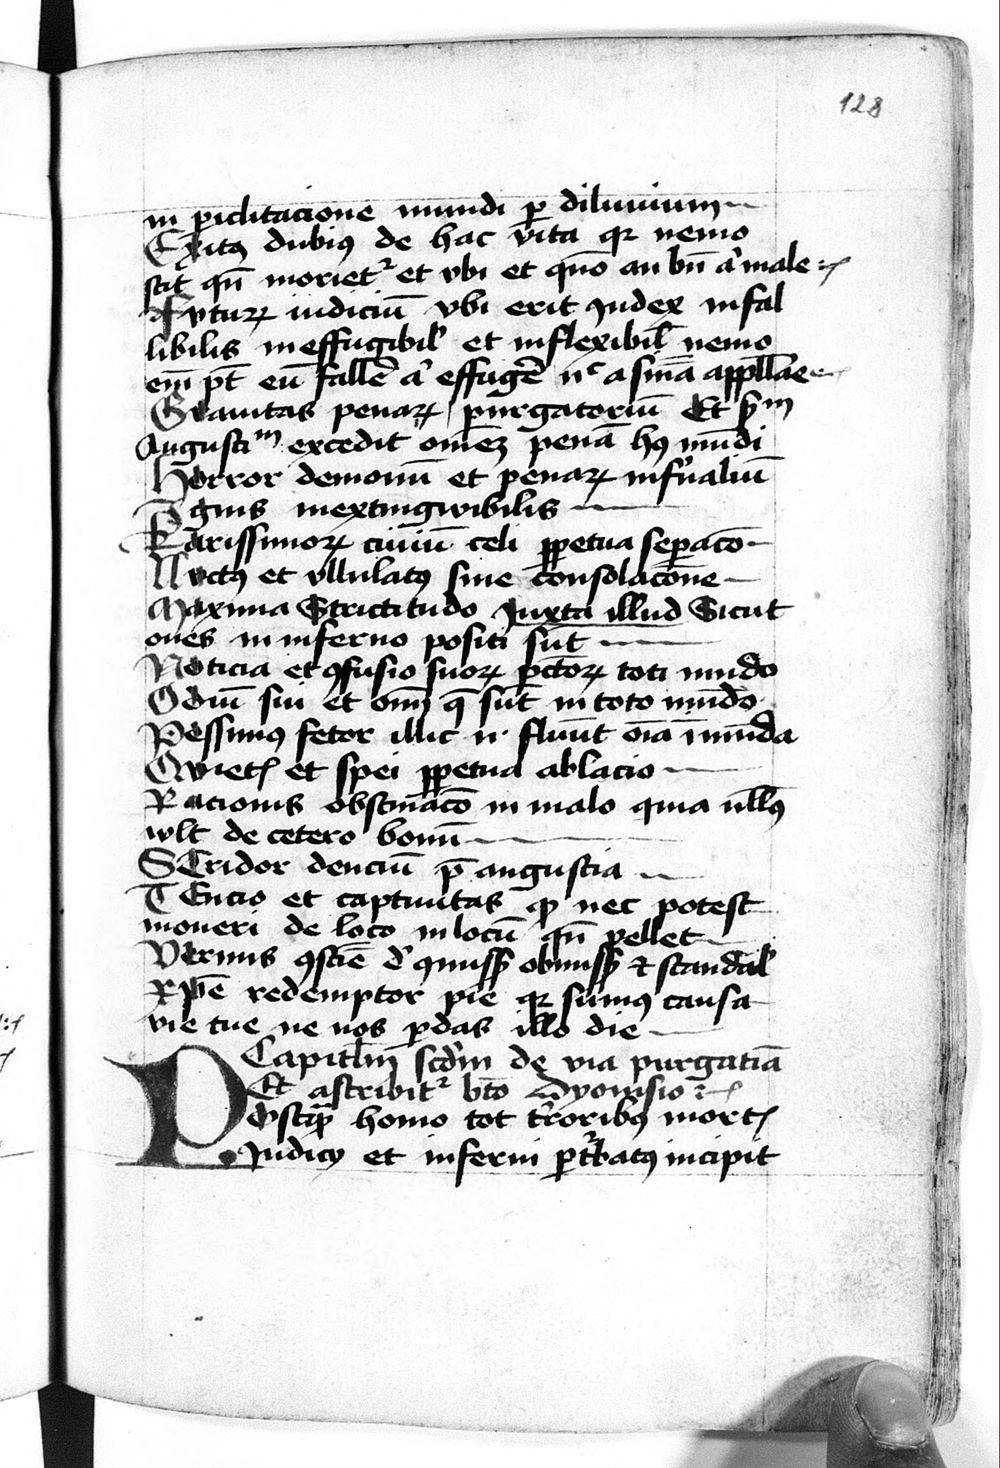 128
in piclitacione mundi ꝑ diluuium
Exitꝰ dubiꝰ de hac vita qꝛ nemo
scit qn̄ morietᷣ et vbi et quo᷑ an bn̄ aͥ male
Futurꝝ iudiciū vbi erit Judex infal
libilis ineffugibil᷑ et inflexibil᷑ nemo
em̄ pt̄ eū fallē aͥ effugē nᶜ a sīna appll̄are
Grauitas penarꝝ purgatoriū Et sᵐ
Augustiᵐ excedit omēꝫ penā hꝰ mūdi
Horror demonū et penarꝝ infᵉnaliū
Ignis inextingwibilis
Karissimorꝝ ciuiū celi ꝑpetua separac̄o
Luctꝰ et vllulatꝰ sine consolac̄one
Maxima Strictitudo Juxta illud Sicut
oues in inferno positi sūt
Noticia et ꝯfusio suorꝝ pctōrꝝ toti mūdo
Odiū sui et oīm q̄ sūt in toto mūdo
Pessimꝰ fetor illic n̄ fluūt oīa īmūda
Quietꝭ et spei ꝑpetua ablacio
Racionis obstinac̄o in malo quia nll̄ꝰ
wlt de cetero bonū
Stridor denciū p̄ angustia
Tencio et captiuitas ꝙ nec potest
moueri de loco in locū qn̄ vellet
Vermis ꝯsciē de᷑ ꝯmissꝭ obmissꝭ ⁊ scandal᷑
Xpē redemptor pie qꝛ sumꝰ causa
vie tue ne nos ꝑdas illo die
Capitl̄m scdm̄ de via purgatiā
Et ascribitᷣ bt̄o dyonisio
Postꝙ̄ homo tot tᵉroribꝰ mortꝭ
Judicij et inferni ꝑtᵘbatꝰ incipit